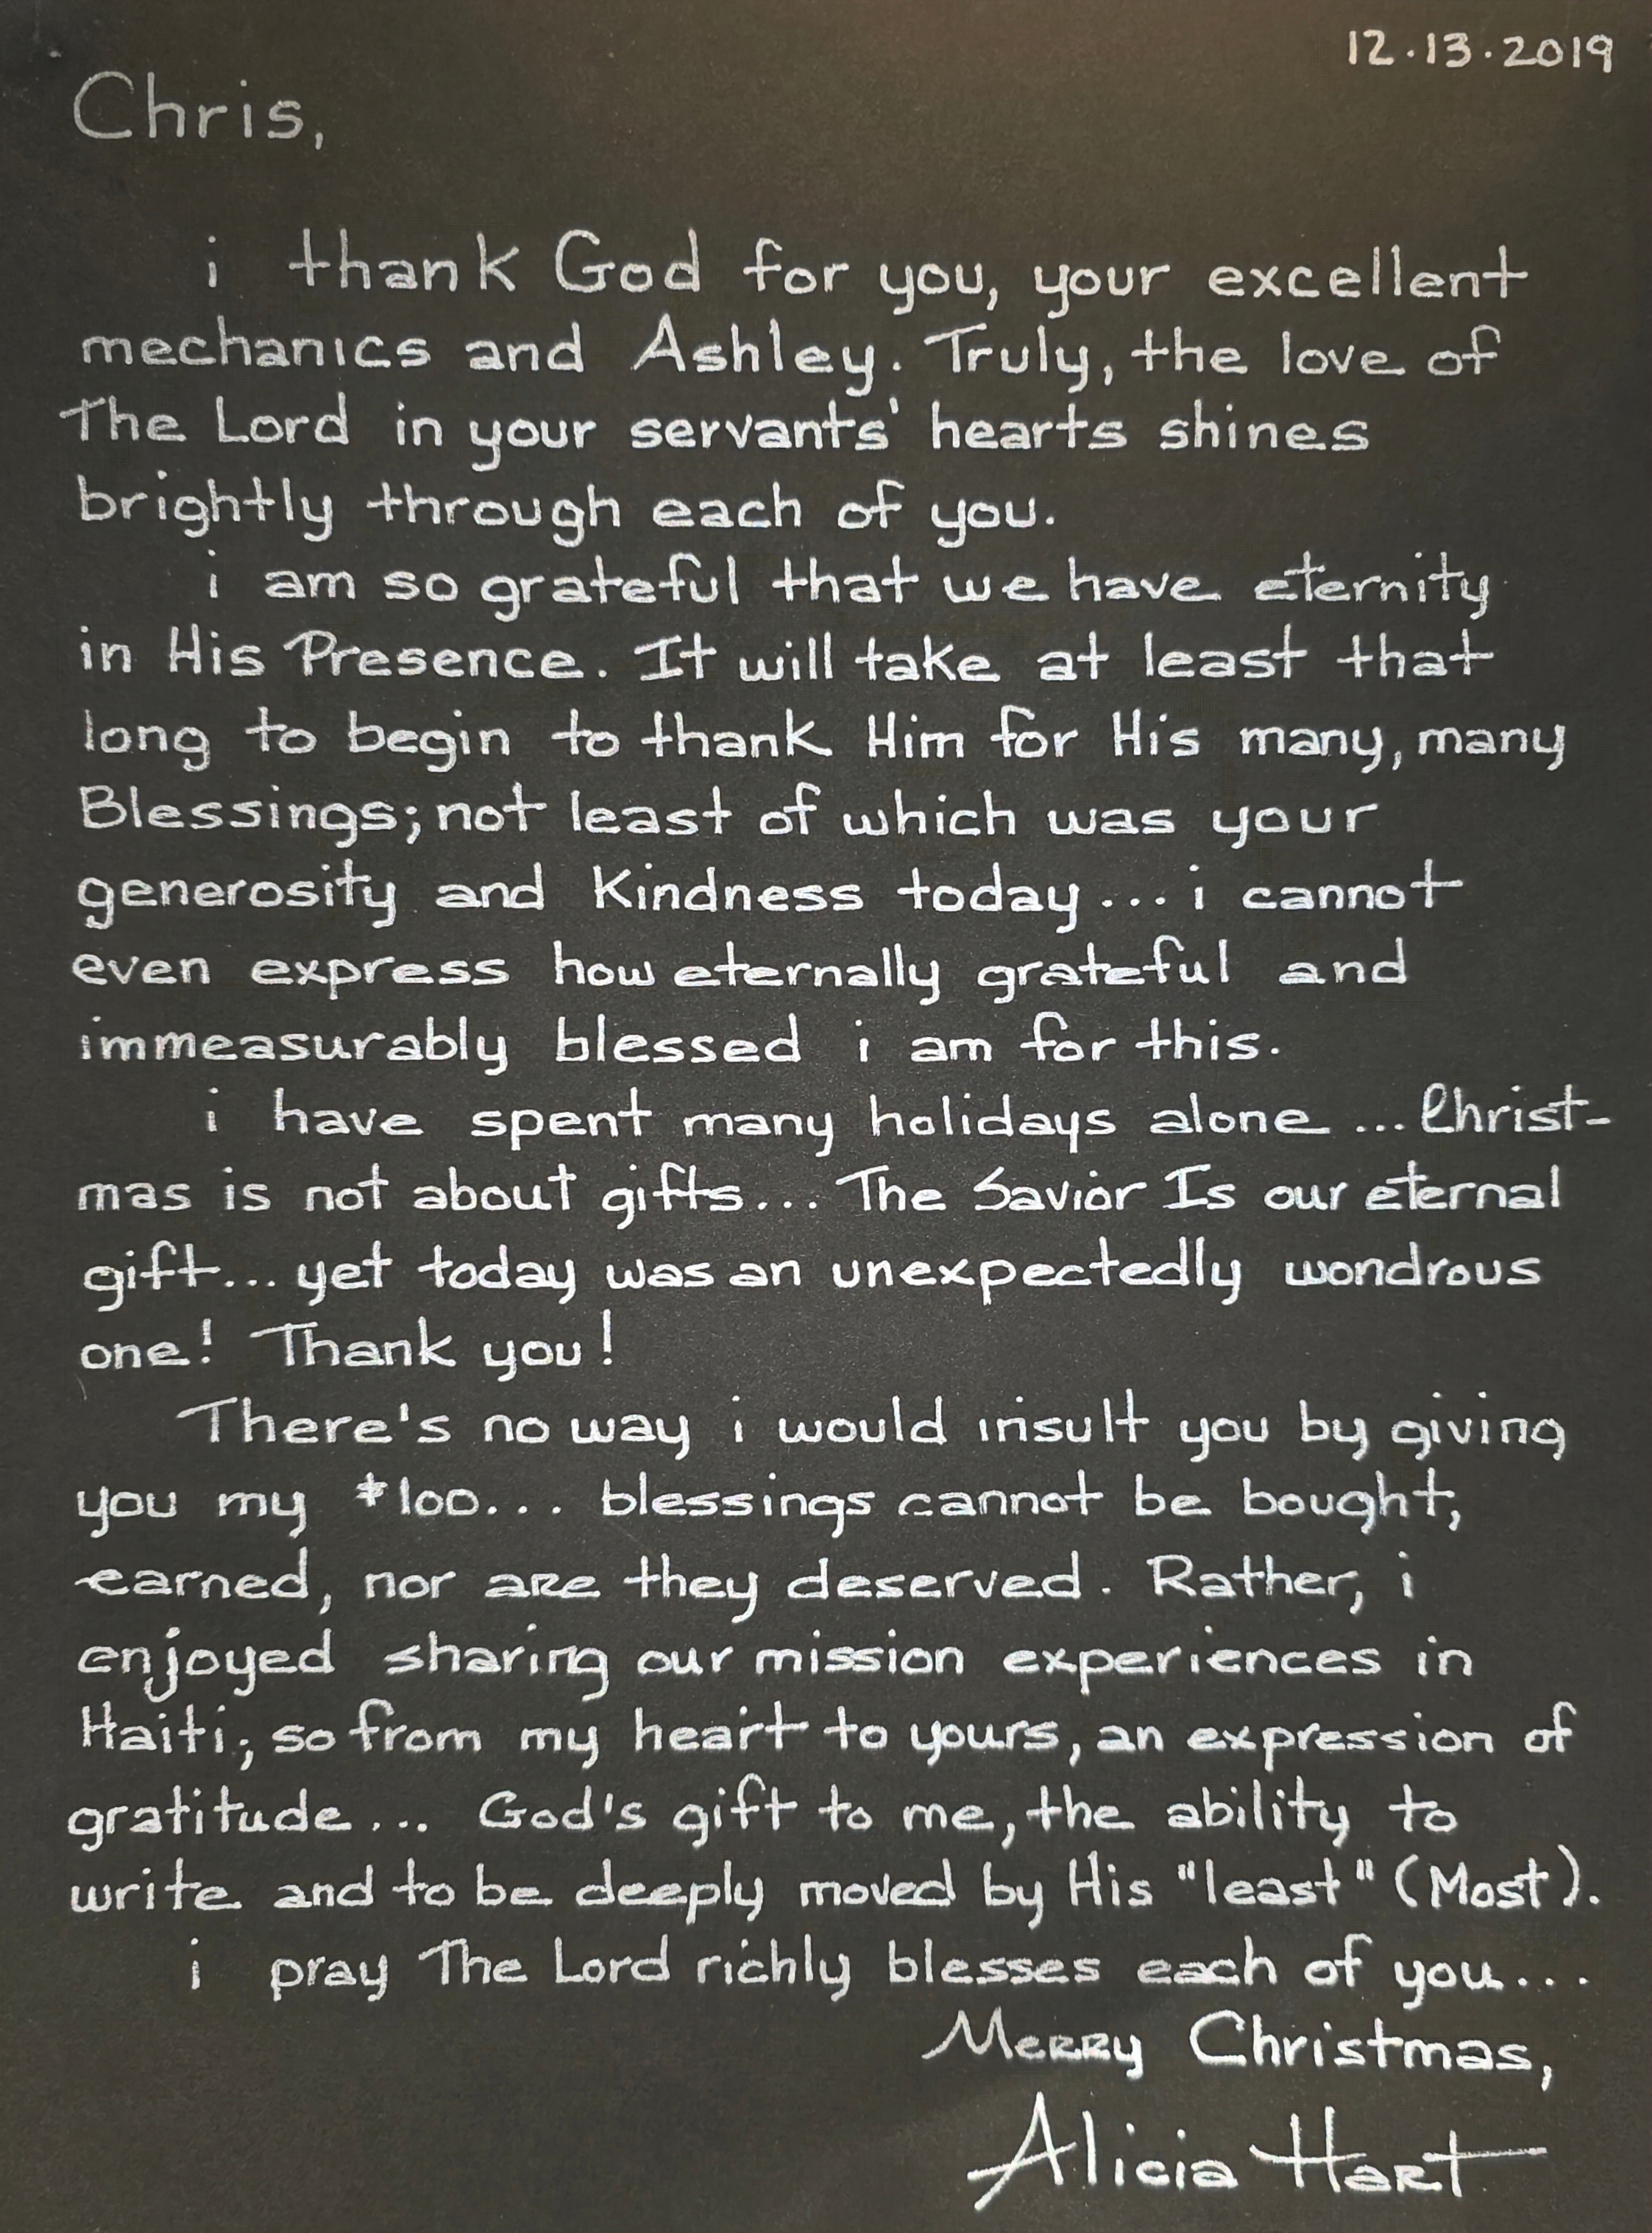 12.13.2019
Chris,
i thank God for you, your excellent
mechanics and Ashley. Truly, the love of
The Lord in your servants' hearts shines
brightly through each of you.
i am so grateful that we have eternity
in His Presence. It will take at least that
long to begin to thank Him for His many, many
Blessings; not least of which was your
generosity and Kindness today... i cannot
even express how eternally grateful and
immeasurably blessed i am for this.
i have spent many holidays alone ... Christ-
mas is not about gifts... The Savior Is our eternal
gift... yet today was an unexpectedly wondrous
one! Thank you!
There's no way i would insult you by giving
you my $100... blessings cannot be bought,
earned, nor are they deserved. Rather, i
enjoyed sharing our mission experiences in
Haiti; so from my heart to yours, an expression of
gratitude... God's gift to me, the ability to
write and to be deeply moved by His "least" (Most).
i pray The Lord richly blesses each of you...
Merry Christmas,
Alicia Hart